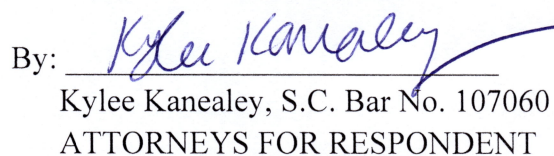 By: Kylee Kanealey
Kylee Kanealey, S.C. Bar No. 107060
ATTORNEYS FOR RESPONDENT